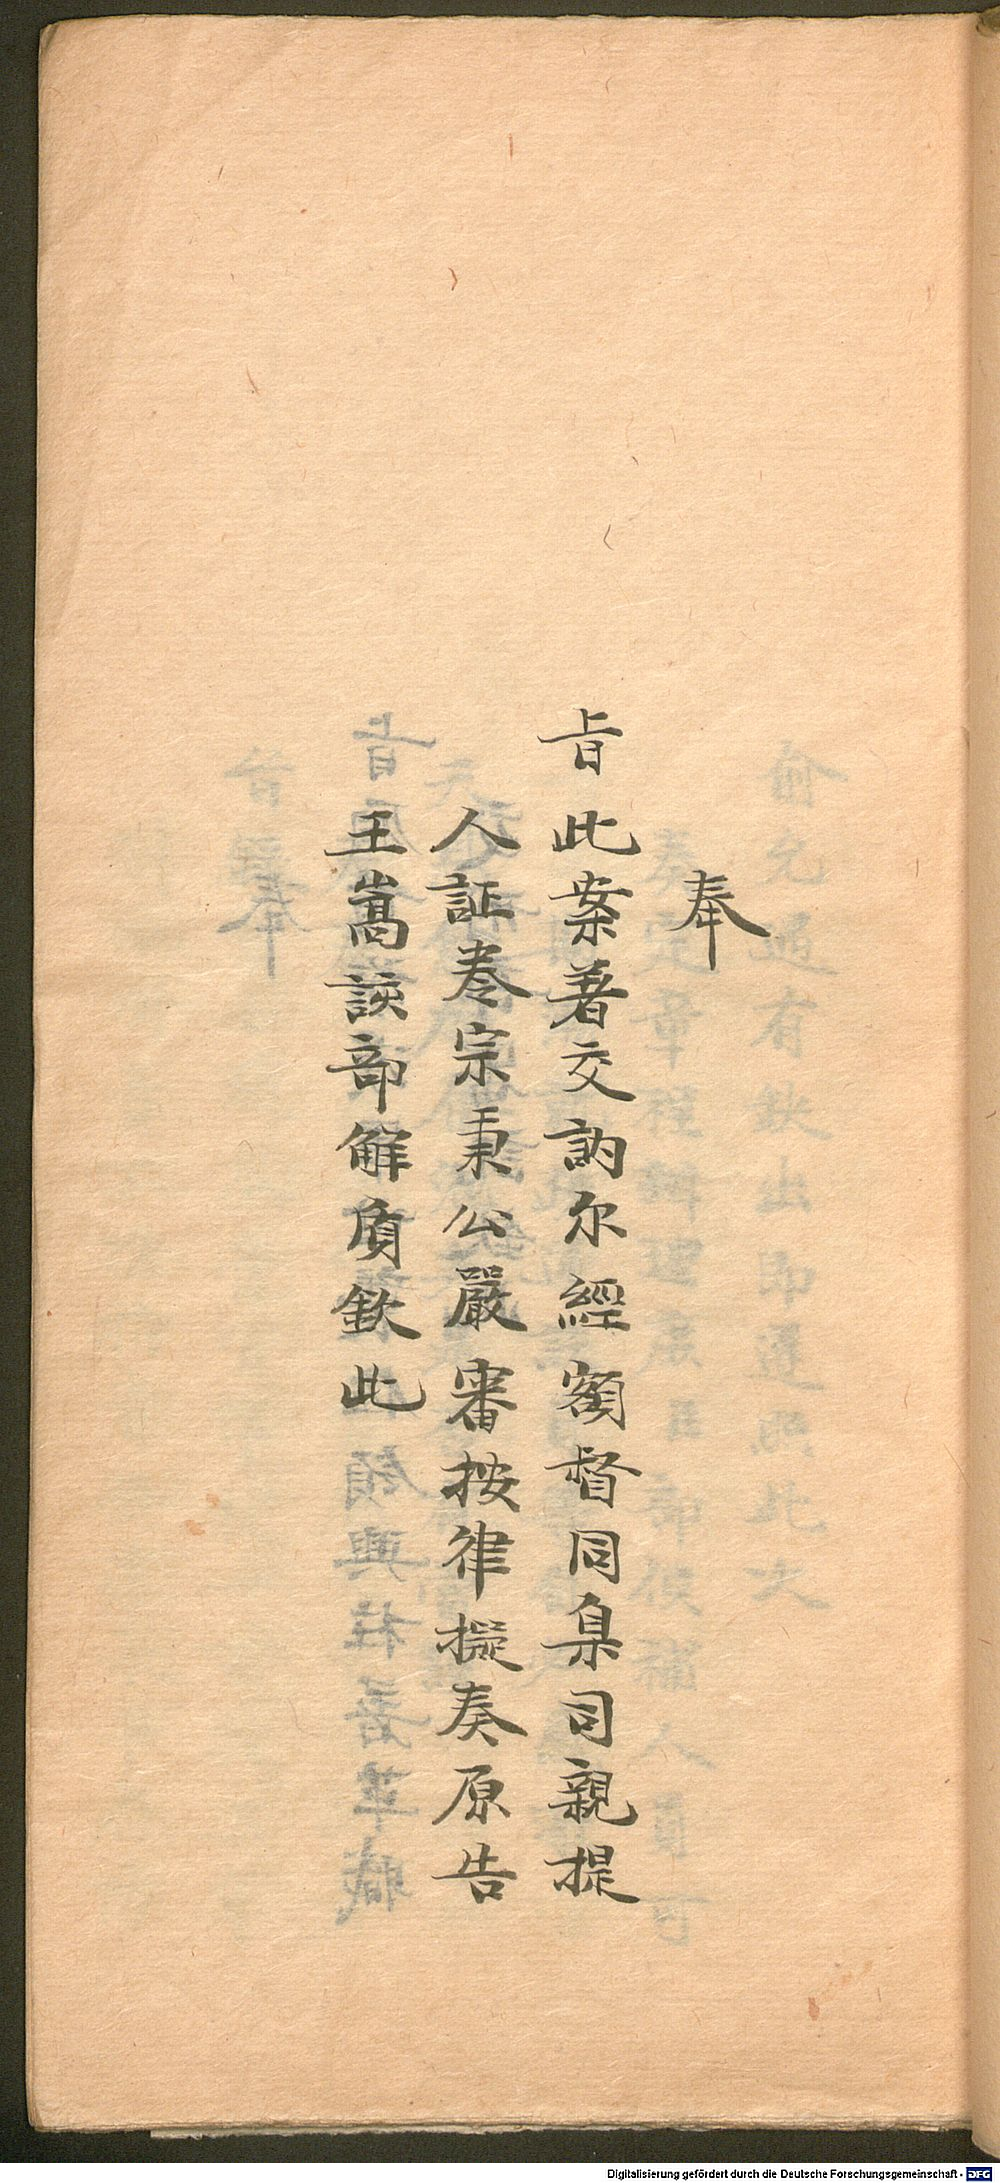 奉
旨此案著交訥尔經額督同臬司親提
人証卷宗秉公嚴審按律擬奏原告
王嵩該部解質欽此
Digitalisierung gefördert durch die Deutsche Forschungsgemeinschaft - DFG